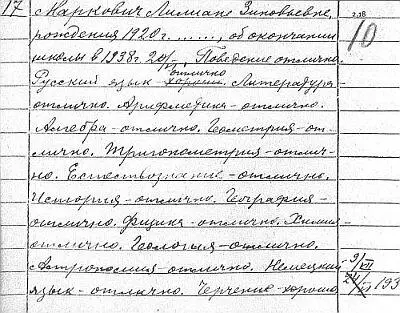 17 Маркович Лилиане Зиновьевне,
рождения 1920 г. ......., об окончании
школы в 1938 г. 20/VI, Поведение отлично.
отлично
Русский язык - хорошо. Литература -
отлично. Арифметика - отлично.
Алгебра - отлично. Геометрия - от-
лично. Тригонометрия - отлич-
но. Естествознание - отлично.
История - отлично. География -
отлично. Физика - отлично. Химия -
отлично. Геология - отлично.
Астрономия - отлично. Немецкий
язык - отлично. Черчение - хорошо
10
9/VII
193